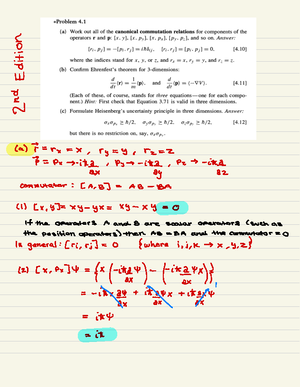 2nd Edition
*Problem 4.1
(a) Work out all of the canonical commutation relations for components of the
operators r and p: [x, y], [x, p_y], [x, p_x], [p_y, p_z], and so on. Answer:
[r_i, p_j] = −[p_i, r_j] = iħδ_ij,  [r_i, r_j] = [p_i, p_j] = 0,  [4.10]
where the indices stand for x, y, or z, and r_x = x, r_y = y, and r_z = z.
(b) Confirm Ehrenfest's theorem for 3-dimensions:
d/dt ⟨r⟩ = 1/m ⟨p⟩, and d/dt ⟨p⟩ = ⟨−∇V⟩.  [4.11]
(Each of these, of course, stands for three equations—one for each compo-
nent.) Hint: First check that Equation 3.71 is valid in three dimensions.
(c) Formulate Heisenberg's uncertainty principle in three dimensions. Answer:
σ_x σ_px ≥ ħ/2,  σ_y σ_py ≥ ħ/2,  σ_z σ_pz ≥ ħ/2,  [4.12]
but there is no restriction on, say, σ_x σ_py.
(a) r⃗ = r_x = x, r_y = y, r_z = z
p⃗ = p_x → -iħ ∂/∂x, p_y → -iħ ∂/∂y, p_z → -iħ ∂/∂z
commutator: [A,B] = AB - BA
(1) [x,y] = xy - yx = xy - xy = 0
If the operators A and B are scalar operators (such as
the position operators) then AB = BA and the commutator = 0
In general: [r_i, r_j] = 0 {where i,j,k → x,y,z}
(2) [x, p_x]ψ = {x(-iħ ∂ψ/∂x) - (-iħ ∂/∂x ψx)}
= -iħ x ∂ψ/∂x + iħ ∂ψ/∂x x + iħ ∂x/∂x ψ
= iħψ
= iħ